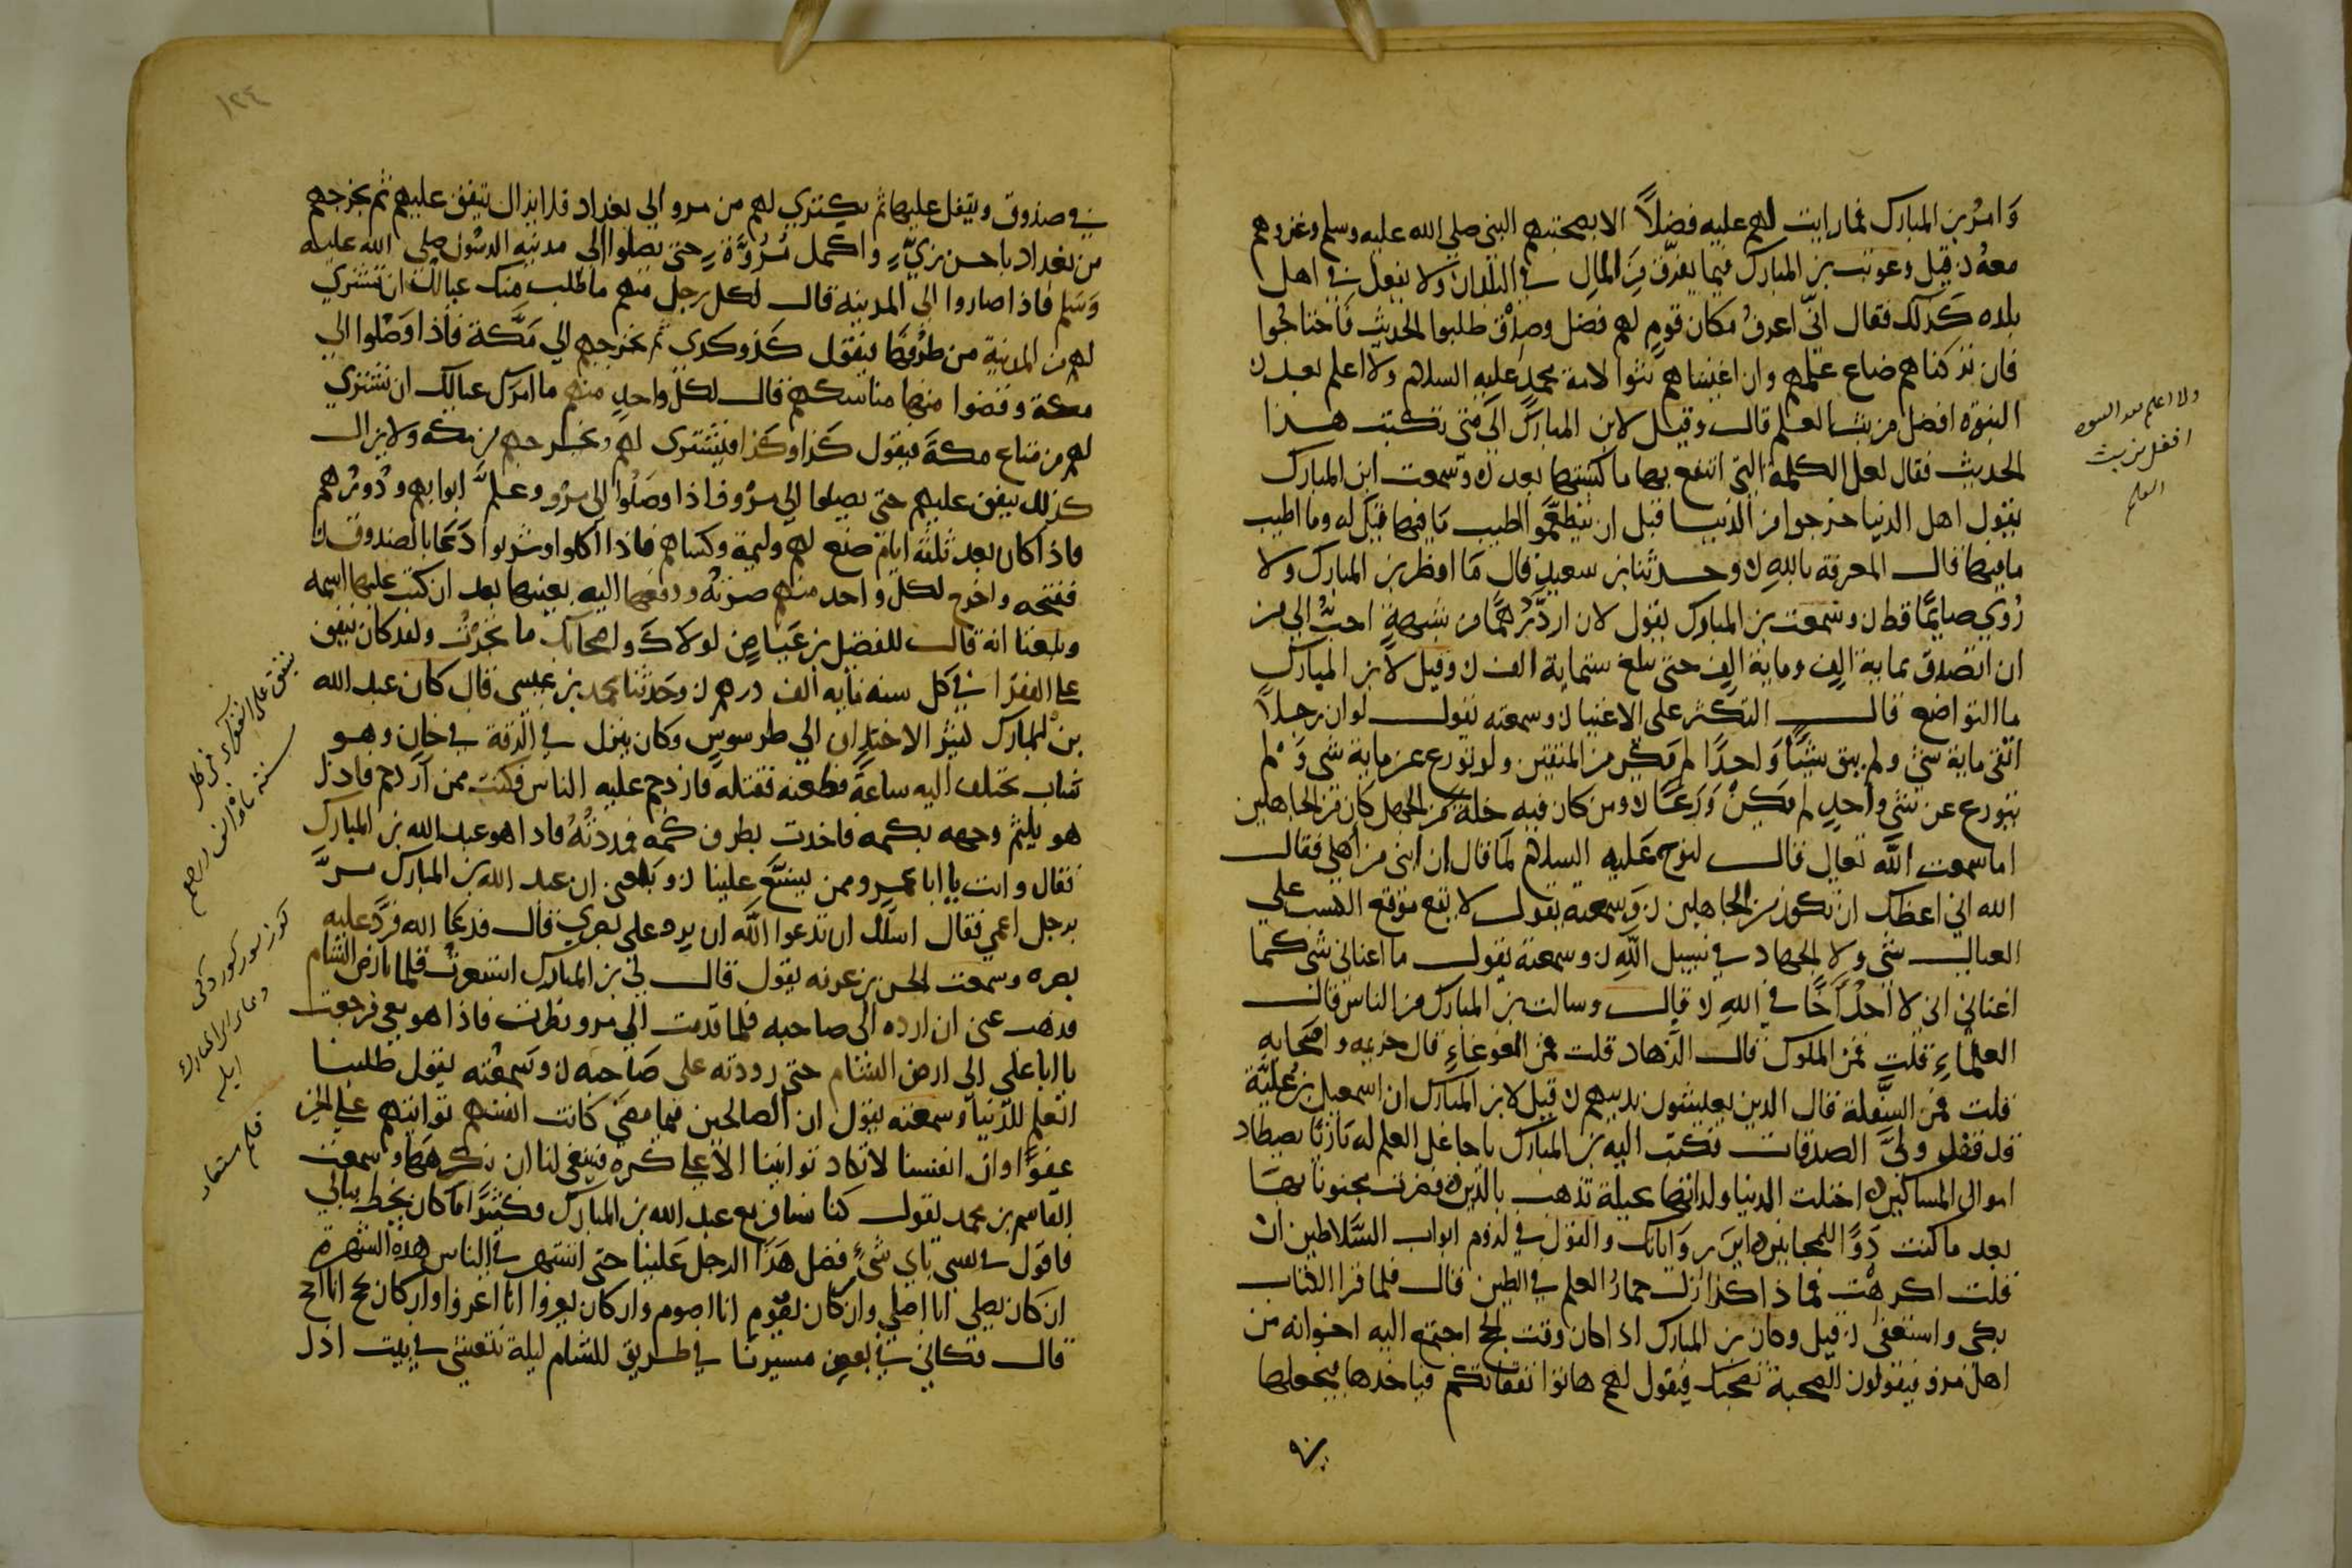 وامر بن المبارك فما رايت لهم عليه فضلاً الا بصحبتهم النبي صلي الله عليه وسلم وغزوهم
معه ن قيل وعوتب بن المبارك فيما يفرق من المال في البلدان ولا يفعل في اهل
بلده كذلك فقال اني اعرف مكان قوم لهم فضل وصدق طلبوا الحديث فاحتاجوا
فان تركناهم ضاع علمهم وان اغنيناهم بثوا لامة محمد عليه السلام ولا اعلم بعد ن
النبوة افضل من بث العلم قال وقيل لابن المبارك الي متي تكتب هذا
الحديث فقال لعل الكلمة التي انتفع بها ما كتبتها بعد ن وسمعت ابن المبارك
يقول اهل الدنيا خرجوا من الدنيا قبل ان يتطعموا اطيب ما فيها قيل له وما اطيب
ما فيها قال المعرفة بالله ن وحدثنا بن سعيد قال ما افطر بن المبارك ولا
رُوي صايمًا قط ن وسمعت بن المبارك يقول لان ارد درهمًا من شبهة احب الي من
ان اتصدق بماية الف وماية الف حتى بلغ ستماية الف ن وقيل لابن المبارك
ما التواضع قال التكبر على الاغنيا ن وسمعته يقول لو ان رجلاً
اتقى ماية شي ولم يتق شيئًا واحدًا لم يكن من المتقين ولو تورع عن ماية شي ولم
يتورع عن شي واحد لم يكن ورعًا ن ومن كان فيه خلة من الجهل كان من الجاهلين
اما سمعت الله تعالى قال لنوح عليه السلام لما قال ان ابني من اهلي فقال
الله اني اعظك ان تكون من الجاهلين ن وسمعته يقول لا يقع موقع الكسب على
العيال شي ولا الجهاد في سبيل الله ن وسمعته يقول ما اعناني شي كما
اعناني اني لا اجد اخًا في الله ن قال وسالت بن المبارك من الناس قال
العلماء قلت فمن الملوك قال الزهاد قلت فمن الغوغاء قال خزيمه واصحابه
قلت فمن السفلة قال الذين يعيشون بدينهم ن قيل لابن المبارك ان اسمعيل بن علية
قد ولي الصدقات فكتب اليه بن المبارك يا جاعل العلم له بازيًا يصطاد
اموال المساكين ن احتلت الدنيا ولذاتها بحيلة تذهب بالدين ن فصرت مجنونًا بها
بعد ما كنت دوًا للمجانين ن اين رواياتك والقول في لزوم ابواب السلاطين ن
قلت اكرهت فماذا كذا زل حمار العلم في الطين قال فلما قرا الكتاب
بكى واستعفى ن قيل وكان بن المبارك اذا كان وقت الحج اجتمع اليه اخوانه من
اهل مرو فيقولون الصحبة نصحبك فيقول لهم هاتوا نفقاتكم فياخذها فيجعلها
ولا اعلم بعد النبوه
افضل من بث
العلم
١٢٤
في صندوق ويقفل عليها ثم يكتري لهم من مرو الي بغداد فلا يزال ينفق عليهم ثم يخرجهم
من بغداد باحسن زيّ واكمل مُرُوَّة حتى يصلوا الى مدينة الرسول صلى الله عليه
وسلم فاذا صاروا الى المدينة قال لكل رجل منهم ما طلب منك عيالك ان تشتري
لهم من المدينة من طُرفها فيقول كذا وكذي ثم يخرجهم الي مكة فاذا وصلوا الي
مكة وقضوا منها مناسكهم قال لكل واحد منهم ما امرك عيالك ان تشتري
لهم من متاع مكة فيقول كذا وكذا فيشتري لهم ويخرجهم من مكه ولا يزال
كذلك ينفق عليهم حتى يصلوا الي مرو فاذا وصلوا الي مرو ابوابهم ودورهم
فاذا كان بعد ثلثة ايام صنع لهم وليمة وكساهم فاذا اكلوا وشربوا دعا بالصندوق ن
ففتحه واخرج لكل واحد منهم صرته ودفعها اليه بعينها بعد ان كتب عليها اسمه
وبلغنا انه قال للفضيل بن عياض لولاك واصحابك ما تجرت ولقد كان ينفق
على الفقرا في كل سنه مايه الف درهم ن وحدثنا محمد بن عيسى قال كان عبد الله
بن المبارك كثير الاختلاف الي طرسوس وكان ينزل في الرقة في خان وهو
شاب يختلف اليه ساعة فطعنه فقتله فازدحم عليه الناس فكنت ممن ازدحم فاذا
هو يلثم وجهه بكمه فاخذت بطرف كمه فمددته فاذا هو عبد الله بن المبارك
فقال وانت يا ابا عمرو ممن يشنع علينا ن وبلغني ان عبد الله بن المبارك مرَّ
برجل اعمي فقال اسلك ان تدعوا الله ان يرد على بصري قال فدعا الله فرد عليه
بصره وسمعت الحسن بن عرفه يقول قال لي بن المبارك استعرت قلما بارض الشام
فذهب عني ان ارده الى صاحبه فلما قدمت الي مرو نظرت فاذا هو معي فرجعت
يا ابا علي الى ارض الشام حتى رددته على صاحبه ن وسمعته يقول طلبنا
العلم للدنيا وسمعته يقول ان الصالحين فيما مضي كانت انفسهم تواتيهم علي الخير
عفوًا وان انفسنا لا تكاد تواتينا الا على كره فينبغي لنا ان نكرهها وسمعت
القاسم بن محمد يقول كنا نسافر مع عبد الله بن المبارك فكثيرًا ما كان يخطر ببالي
فاقول في نفسي باي شيء فضل هذا الرجل علينا حتى اشتهر في الناس هذه الشهرة
ان كان يصلي انا اصلي وان كان يصوم انا اصوم وان كان يغزوا انا اغزوا وان كان يحج انا احج
قال فكاني في بعض مسيرنا في طريق للشام ليلة نتعشي في بيت اذ
ينفق على الفقرا در كل
سنه ماه الف درهم
قلم مستعار